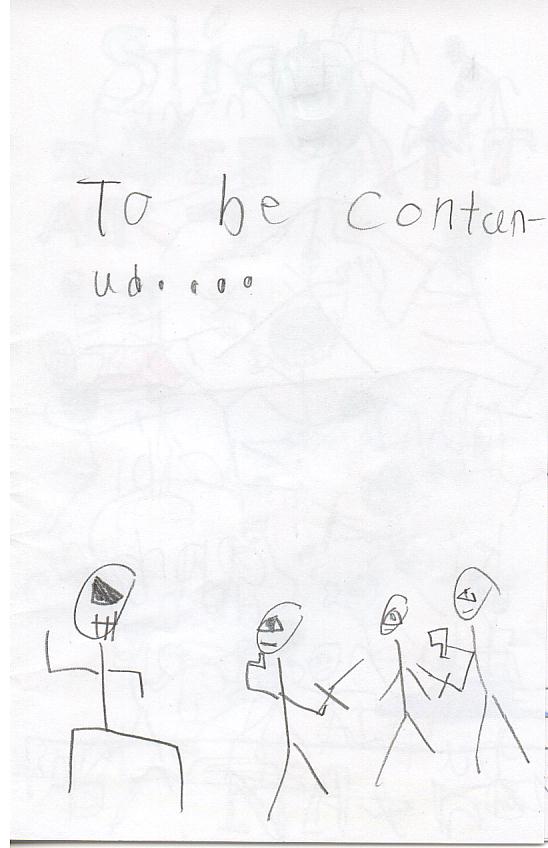 To be contun-
ud....